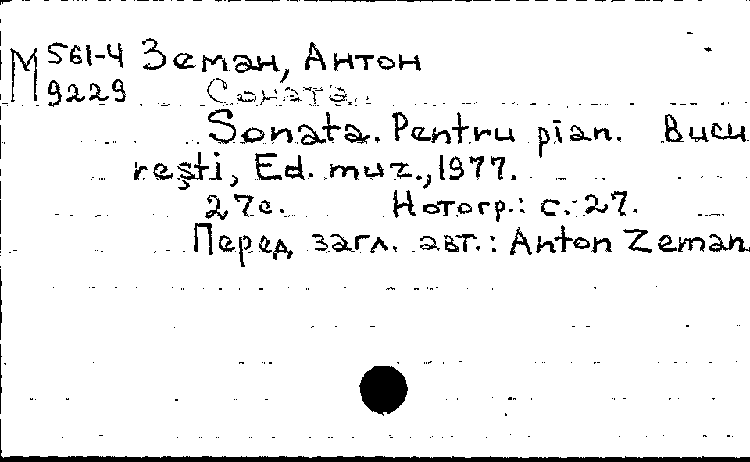 М 561-4 Земан, Антон
9229 Соната.
Sonata. Pentru pian. Bucu
reşti, Ed. muz., 1977.
27с. Нотогр.: с. 27.
Перед загл. авт.: Anton Zeman.